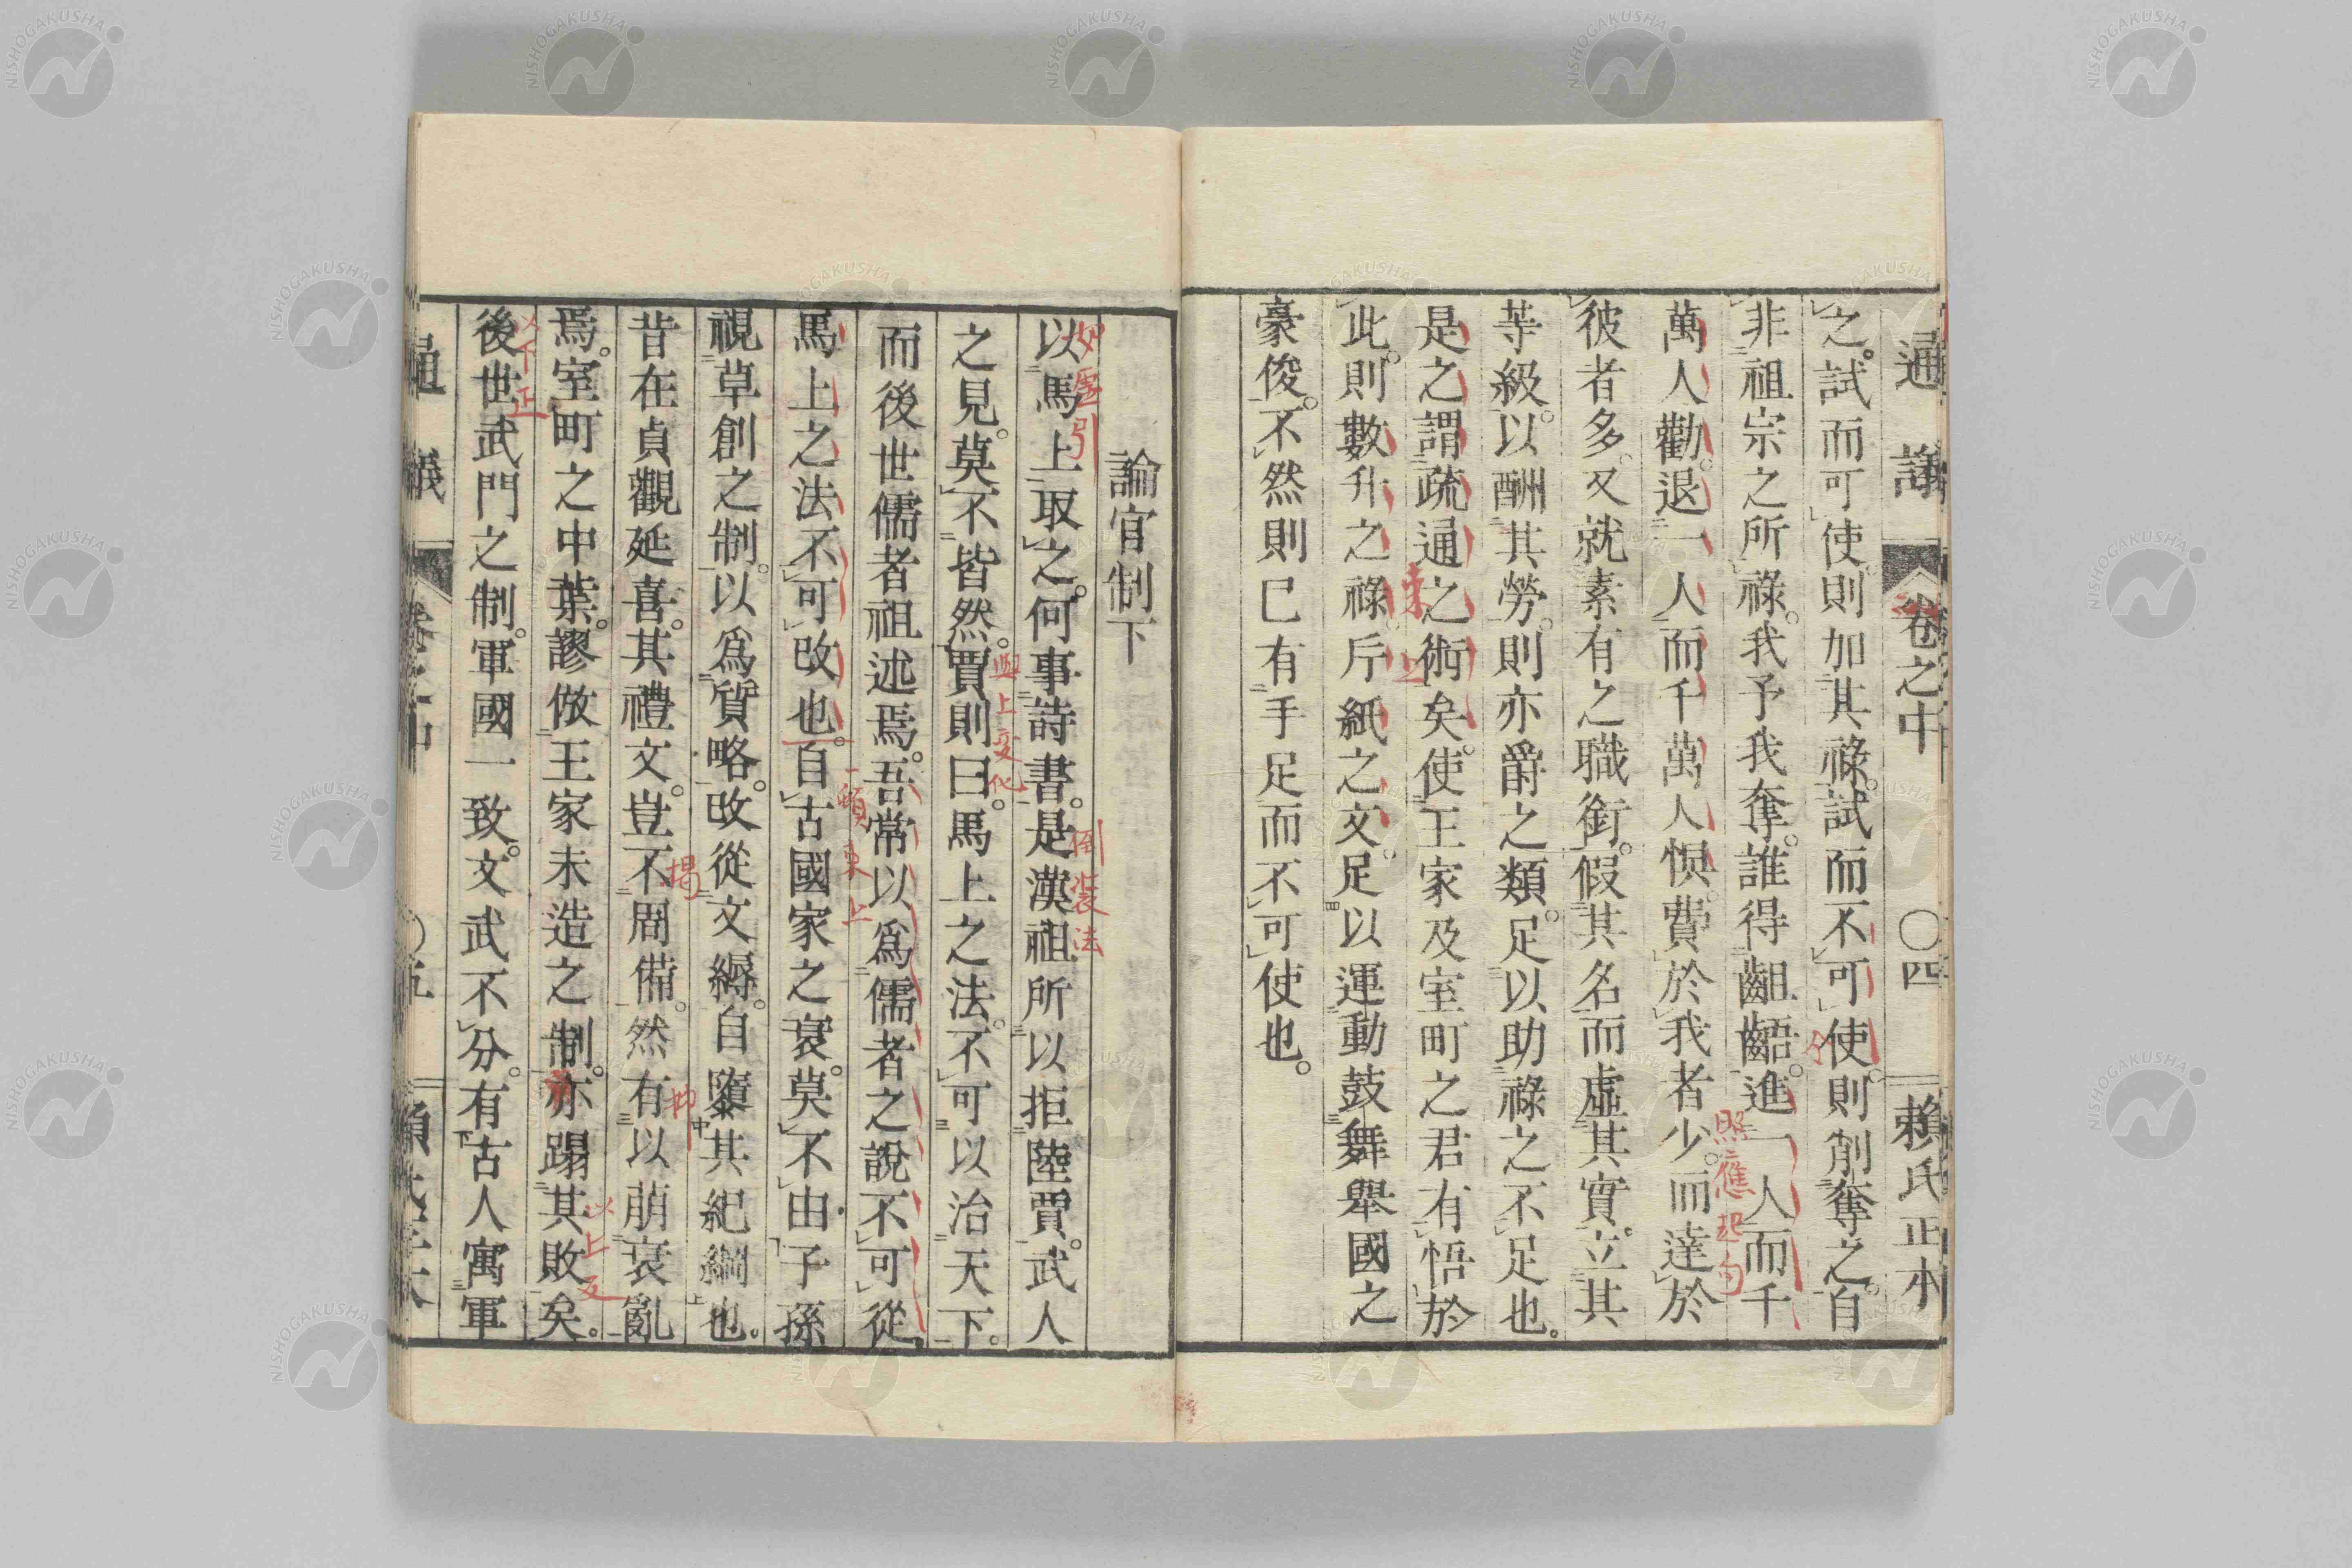 通議 卷之中 〇四 賴氏正本
之。試而可使則加其祿。試而不可使。則削奪之。自
非祖宗之所祿。我予我奪。誰得齟齬。進一人而千
萬人勸。退一人而千萬人惧。費於我者少。而達於
彼者多。又就素有之職銜。假其名而虛其實。立其
等級。以酬其勞。則亦爵之類。足以助祿之不足也。
是之謂疏通之術矣。使王家及室町之君有悟於
此。則數升之祿。斤紙之文。足以運動鼓舞舉國之
豪俊。不然則已有手足而不可使也。
照應起句
論官制下
以馬上取之。何事詩書。是漢祖所以拒陸賈。武人
之見。莫不皆然。賈則曰。馬上之法。不可以治天下。
而後世儒者祖述焉。吾常以爲儒者之說不可從。
馬上之法不可改也。自古國家之衰。莫不由子孫
視草創之制。以爲質略。改從文縟。自隳其紀綱也。
昔在貞觀延喜。其禮文。豈不周備。然有以萌衰亂
焉。室町之中葉。謬倣王家未造之制。亦蹋其敗矣。
後世武門之制。軍國一致。文武不分。有古人寓軍
倒裝法
與上変化
一頓
束上
揚
抑
以上反
以下正
通議 卷之中 〇五
NISHOGAKUSHA